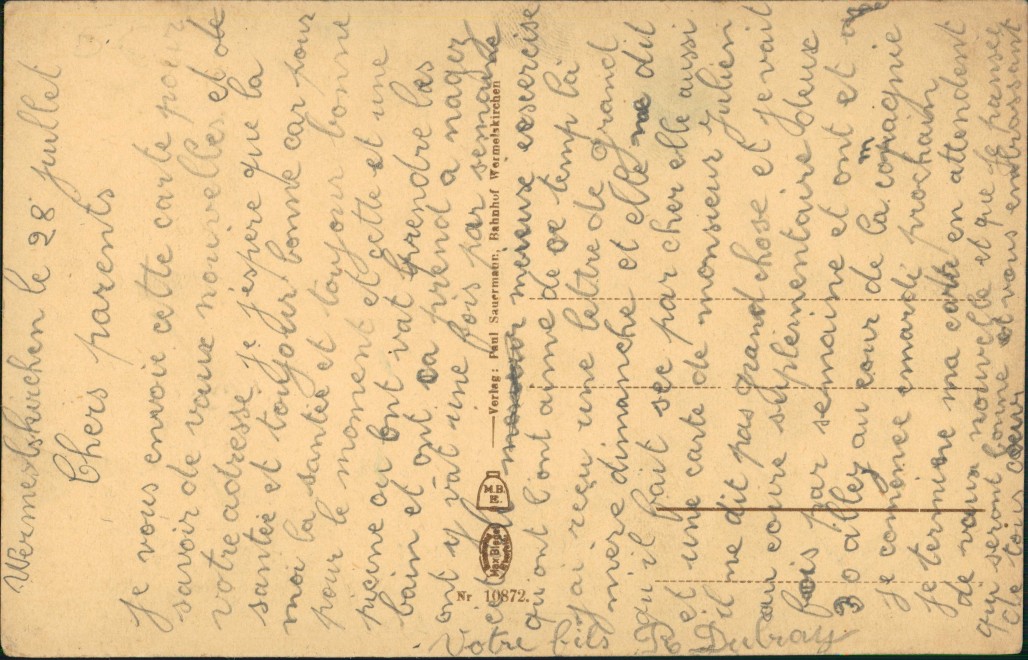 Wermelskirchen le 28 juillet
Chers parents
Je vous envoie cette carte pour
savoir de vaux nouvelles et de
votre adresse je j'espere que la
santée et toujour bonne car pour
moi la santée et toujour bonne
pour le moment et gette et une
picine ou ont vat prendre les
bain et ont ca prend a nagez
ont y vat une fois par semaine
et mieux escercise
qu ont l'ont aime de ce temp là
j'ai reçu une lettre de grand
mere dimanche et elle me dit
qu'il fait sec par cher elle aussi
et une carte de monsieur Julien
il me dit pas grand chose et je vait
au cour suplementaire deux
fois par semaine et ont et
30 a alley au cour de la compagnie
Je comence mardi prochain
Je termine ma carte en attendent
de vaux nouvelle et que je panses
qui seront bonne et vous embrassant
de tous cœur
Votre fils R Dubray
Verlag: Paul Sauermann, Bahnhof Wermelskirchen
M.B.
Nr 10872.